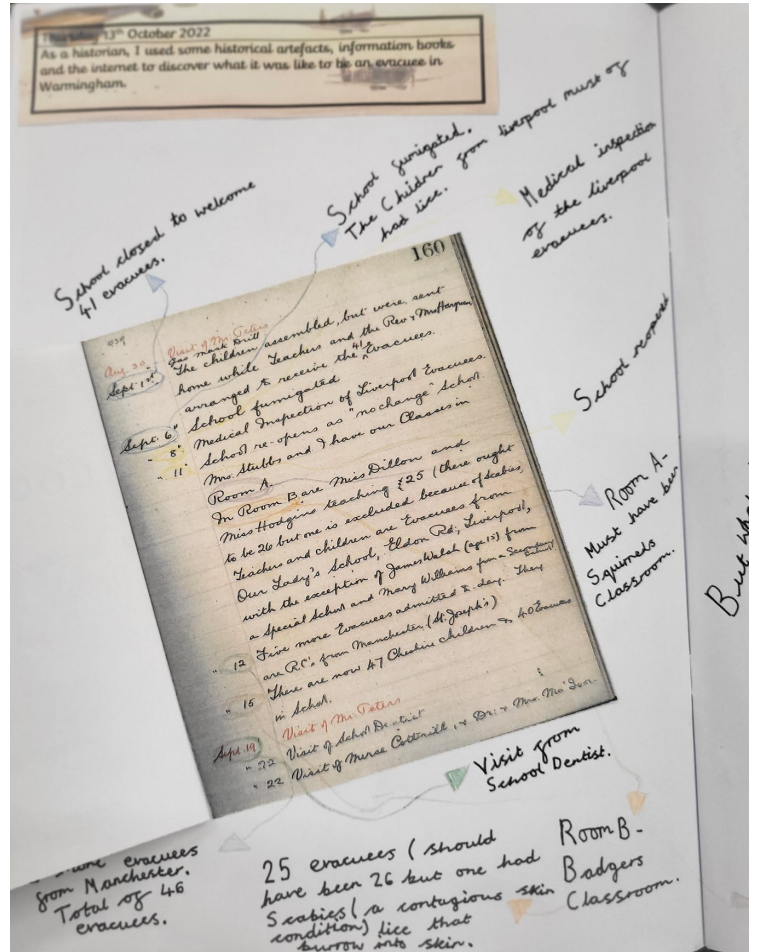 13th October 2022
As a historian, I used some historical artefacts, information books
and the internet to discover what it was like to be an evacuee in
Warmingham.
School closed to welcome
41 evacuees.
School fumigated.
The Children from liverpool must of
had lice.
Medical inspection
of the liverpool
evacuees.
160
Aug. 30 Visit of Mr. Peters
Gas mask Drill
Sept. 1st The children assembled, but were sent
home while Teachers and the Rev & Mrs
arranged to receive the 41 Evacuees.
Sept. 6" School fumigated
" 8" Medical Inspection of Liverpool Evacuees.
" 11" School re-opens as "no change" School.
Mrs. Stubbs and I have our Classes in
Room A.
In Room B are Miss Dillon and
Miss Hodgins teaching 25 (there ought
to be 26 but one is excluded because of scabies,
Teachers and children are Evacuees from
Our Lady's School, Eldon Rd., Liverpool,
with the exception of James Walsh (age 15) from
a Special School and Mary Williams from a
" 12 Five more Evacuees admitted to-day. They
are R.C's from Manchester (St. Joseph's)
" 15 There are now 47 Cheshire children & 40 Evacuees
in School.
Sept. 19" Visit of Mr Peters
" 22 Visit of School Dentist
" 22 Visit of Nurse Cotterill, & Dr. & Mrs.
School reopens
Room A-
Must have been
Squirrels
Classroom.
But
Visit from
School Dentist.
more evacuees
from Manchester.
Total of 46
evacuees.
25 evacuees (should
have been 26 but one had
Scabies (a contagious skin
condition) lice that
burrow into skin.
Room B-
Badgers
Classroom.